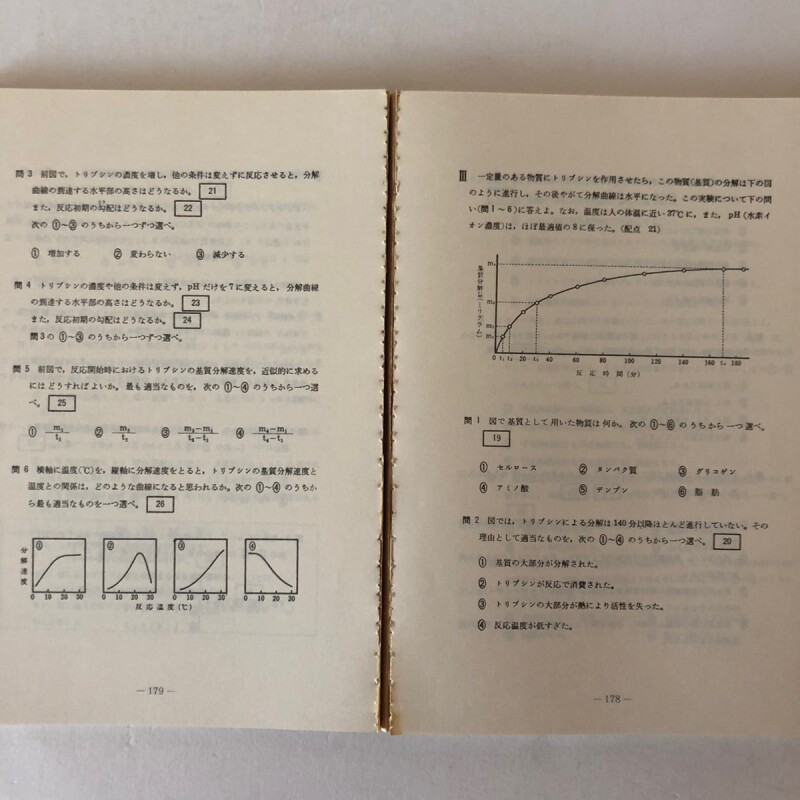 問3 前図で，トリプシンの濃度を増し，他の条件は変えずに反応させると，分解
曲線の到達する水平部の高さはどうなるか。 21
また，反応初期の勾配はどうなるか。 22
次の ①～③ のうちから一つずつ選べ。
① 増加する ② 変わらない ③ 減少する
問4 トリプシンの濃度や他の条件は変えず，pHだけを7に変えると，分解曲線
の到達する水平部の高さはどうなるか。 23
また，反応初期の勾配はどうなるか。 24
問3の ①～③ のうちから一つずつ選べ。
問5 前図で，反応開始時におけるトリプシンの基質分解速度を，近似的に求める
にはどうすればよいか。最も適当なものを，次の ①～④ のうちから一つ選
べ。 25
① m₁/t₁ ② ③ ④
問6 横軸に温度(℃)を，縦軸に分解速度をとると，トリプシンの基質分解速度と
温度との関係は，どのような曲線になると思われるか。次の ①～④ のうちか
ら最も適当なものを一つ選べ。 26
分解速度
① ② ③ ④
0 10 20 30 0 10 20 30 0 10 20 30 0 10 20 30
反応温度(℃)
— 179 —
Ⅲ 一定量のある物質にトリプシンを作用させたら，この物質(基質)の分解は下の図
のように進行し，その後やがて分解曲線は水平になった。この実験について下の問
い(問1～6)に答えよ。なお，温度は人の体温に近い37℃に，また，pH(水素イ
オン濃度)は，ほぼ最適値の8に保った。(配点 21)
基質分解量(ミリグラム)
0 t₁ t₂ 20 t₃ 40 60 80 100 120 140 160 t₄ 180
反応時間(分)
問1 図で基質として用いた物質は何か。次の ①～⑥ のうちから一つ選べ。
19
① セルロース ② タンパク質 ③ グリコゲン
④ アミノ酸 ⑤ デンプン ⑥ 脂肪
問2 図では，トリプシンによる分解は140分以降ほとんど進行していない。その
理由として適当なものを，次の ①～④ のうちから一つ選べ。 20
① 基質の大部分が分解された。
② トリプシンが反応で消費された。
③ トリプシンの大部分が熱により活性を失った。
④ 反応温度が低すぎた。
— 178 —